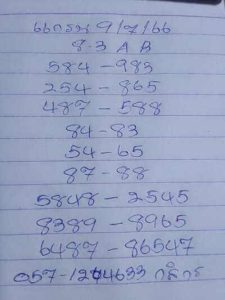 9/7/66
8-3 A B
584-983
254-865
487-588
84-83
54-65
87-88
5848-2545
8389-8965
6487-86547
057-1244633